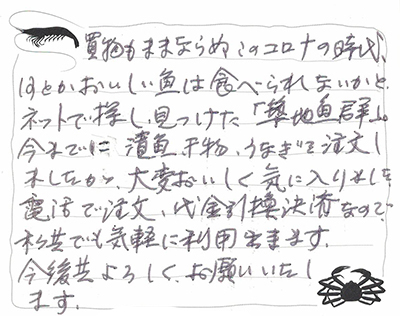 買物もままならぬこのコロナの時代、
何とかおいしい魚は食べられないかと
ネットで探し見つけた「築地魚群」。
今までに漬魚、干物、うなぎを注文し
ましたが、大変おいしく気に入りました
電話で注文、代金引換決済なので
私共でも気軽に利用出来ます。
今後共よろしく、お願いいたし
ます。